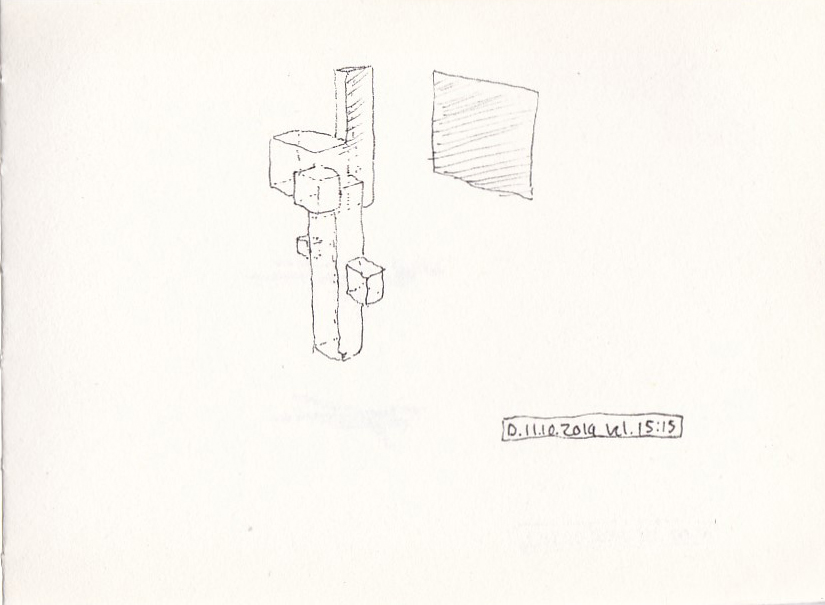 D.11.10.2019 kl. 15:15